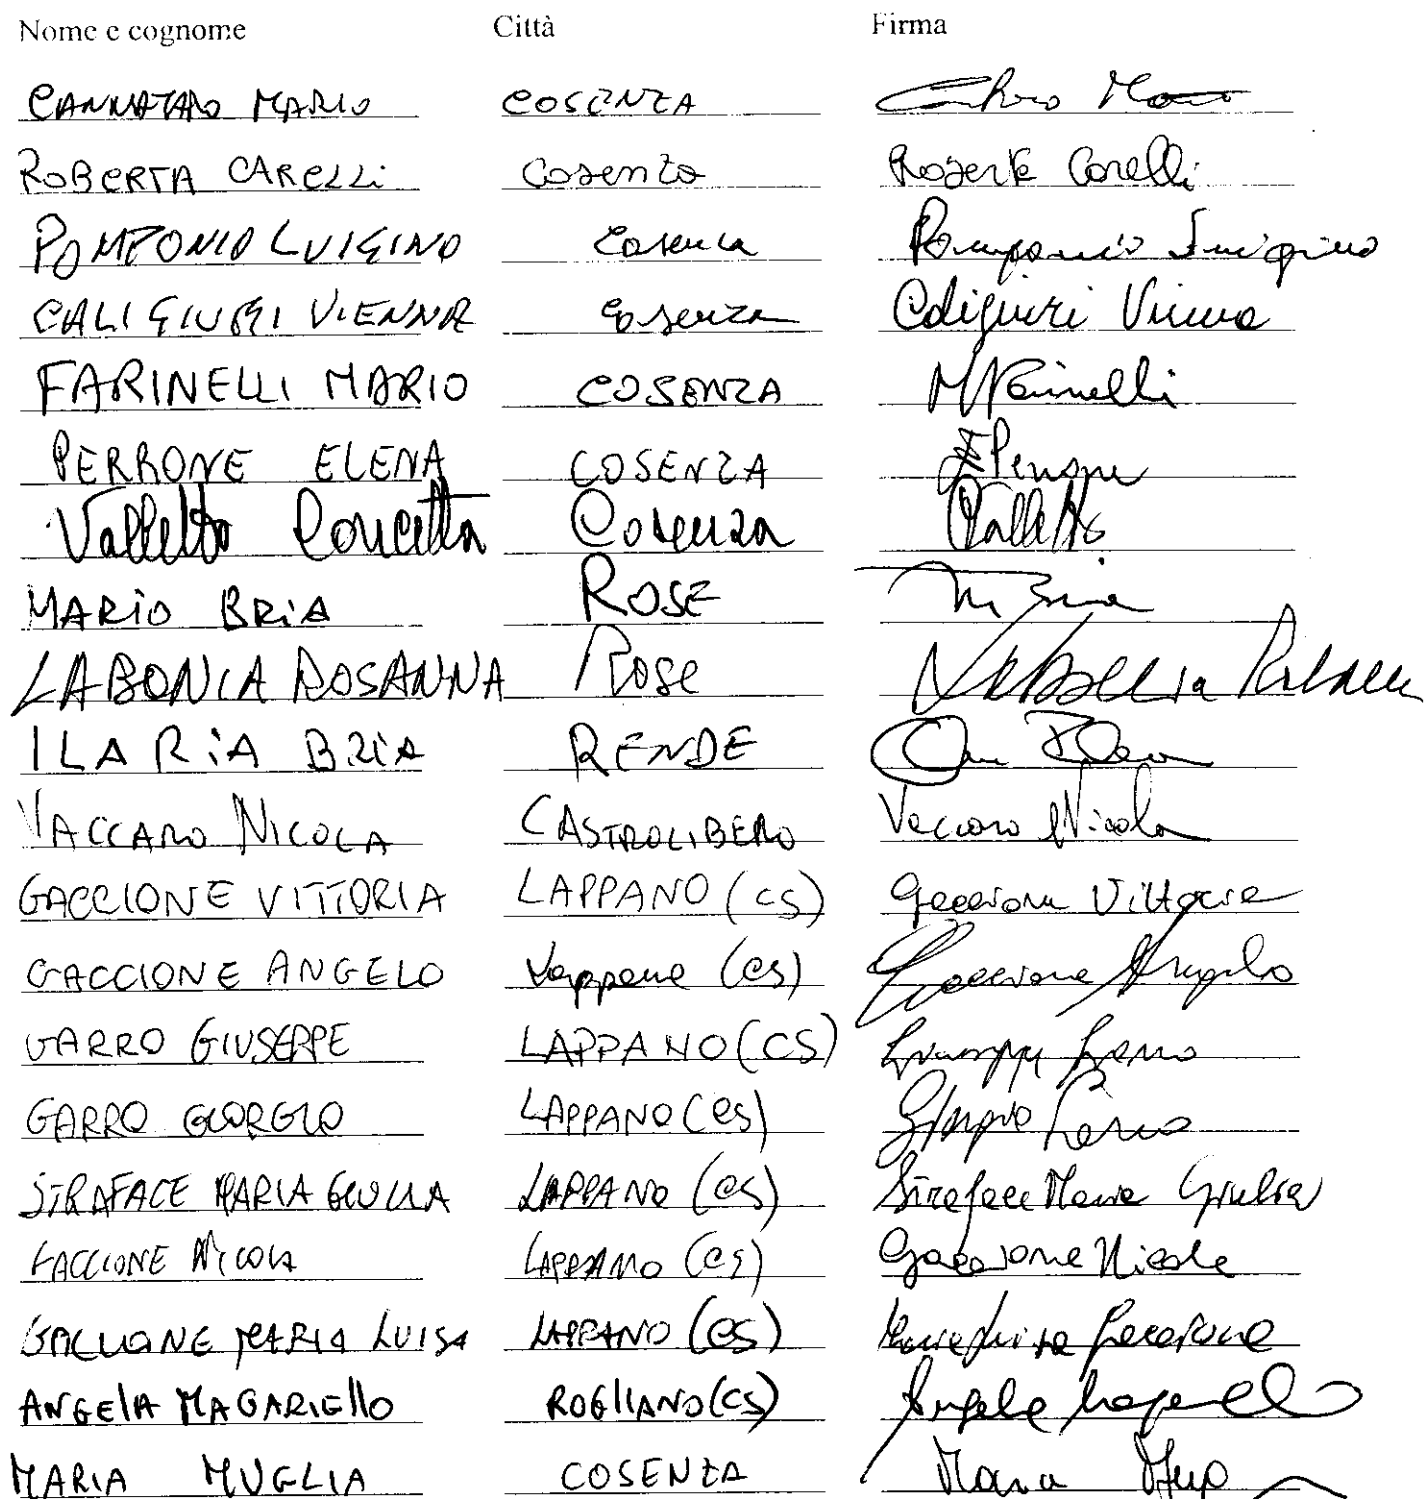 Nome e cognome Città Firma
CANNATARO MARIO COSENZA
ROBERTA CARELLI Cosenza Roberta Carelli
POMPONIO LUIGINO Cosenza Pomponio Luigino
CALIGIURI VIENNA Cosenza Caligiuri Vienna
FARINELLI MARIO COSENZA M Farinelli
PERRONE ELENA COSENZA E Perrone
Valletto Concetta Cosenza Valletto
MARIO BRIA ROSE M Bria
LABONIA ROSANNA Rose
ILARIA BRIA RENDE
VACCARO NICOLA CASTROLIBERO Vaccaro Nicola
GACCIONE VITTORIA LAPPANO (CS) Gaccione Vittoria
GACCIONE ANGELO Lappano (CS) Gaccione Angelo
GARRO GIUSEPPE LAPPANO (CS) Giuseppe Garro
GARRO GIORGIO LAPPANO (CS) Giorgio Garro
STRAFACE MARIA GIULIA LAPPANO (CS) Straface Maria Giulia
GACCIONE NICOLA LAPPANO (CS) Gaccione Nicola
GACCIONE MARIA LUISA LAPPANO (CS) Maria Luisa Gaccione
ANGELA MAGARIELLO ROGLIANO (CS) Angela
MARIA MUGLIA COSENZA Maria